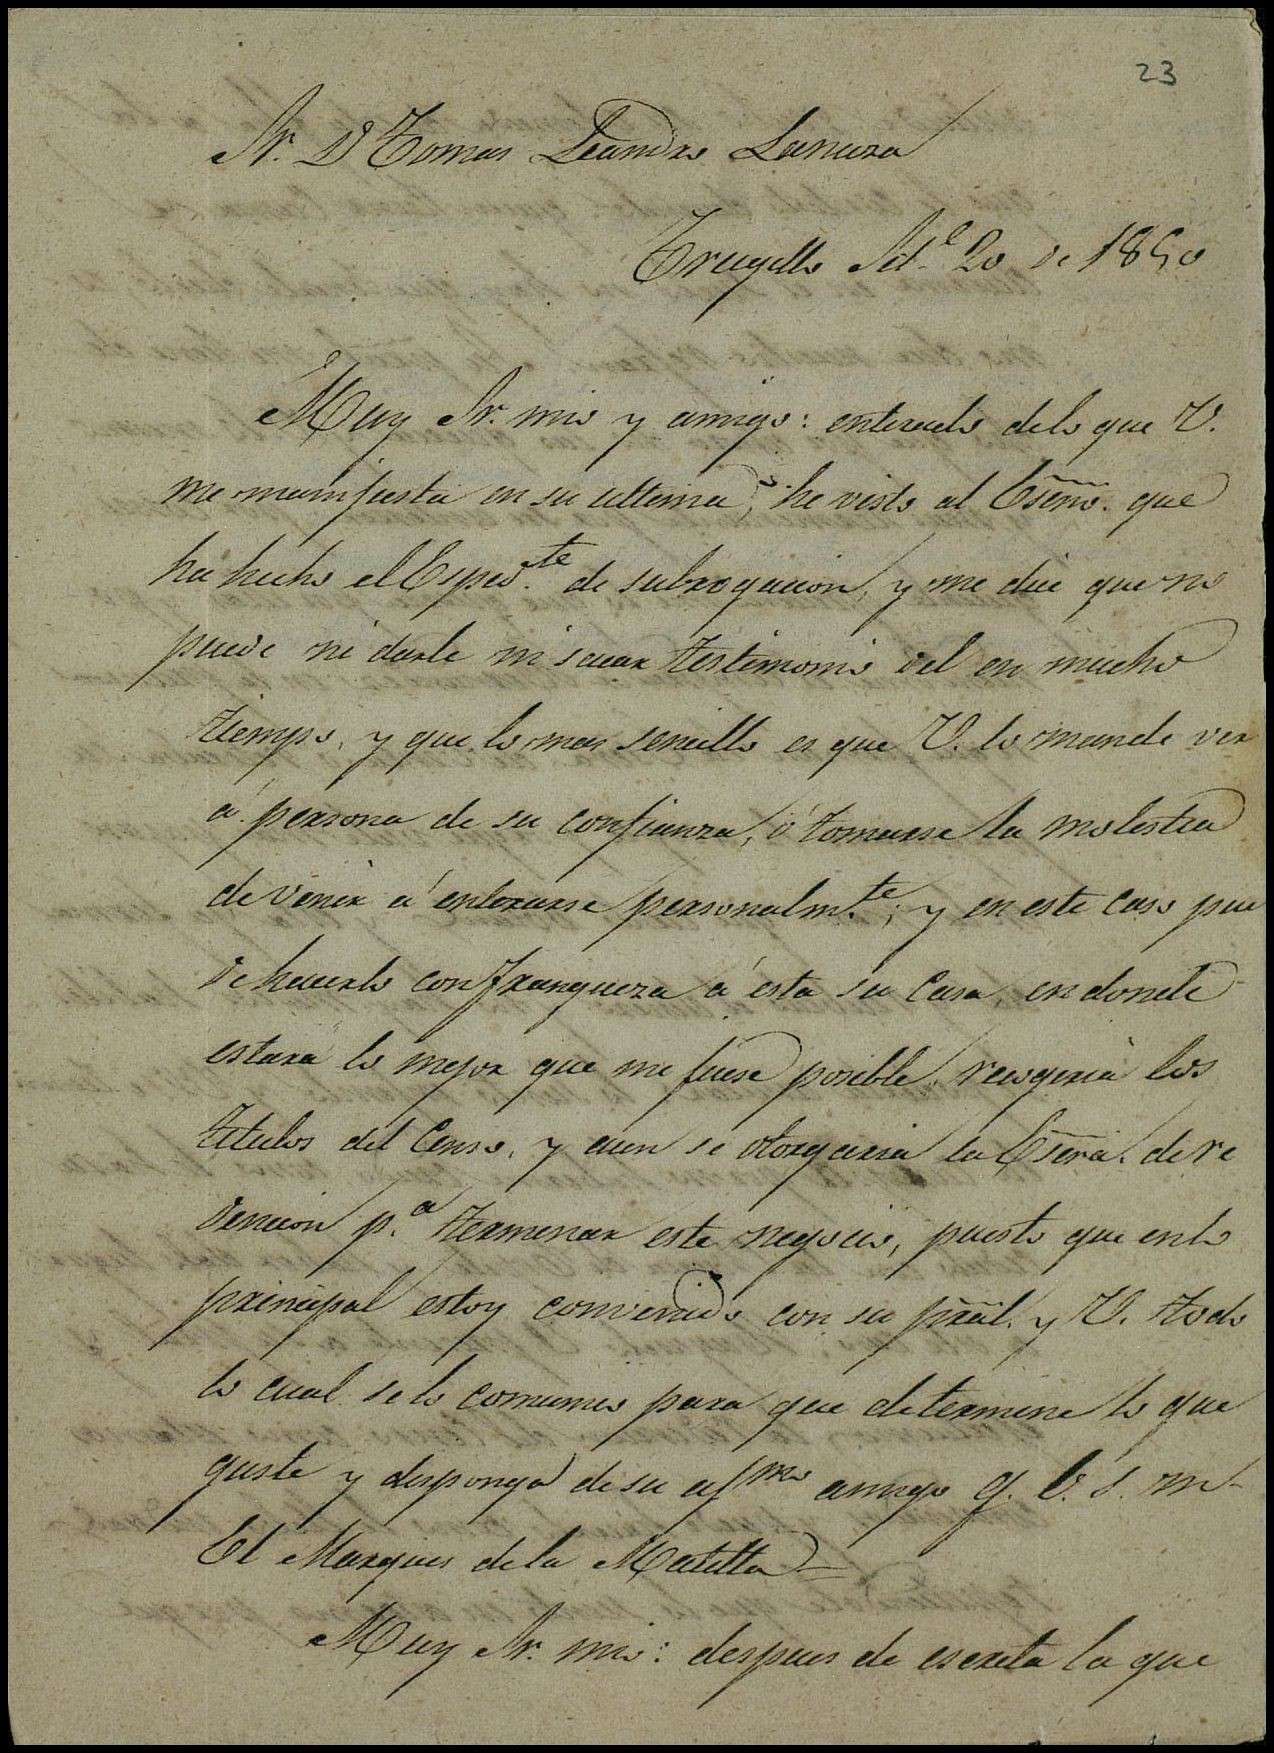 23
Sr. Dn Tomas Leandro Lanuza
Trugillo Set.e 20 de 1850
Muy Sr. mio y amigo: enterado delo que V.
me manifiesta en su ultima, he visto al Esno. que
ha hecho el Esped.te de subrogacion, y me dice que no
puede ni darle ni sacar testimonio del en mucho
tiempo, y que lo mas sencillo es que V. lo mande ver
á persona de su confianza, ó tomarse la molestia
de venir á enterarse personalm.te; y en este caso pue
de hacerlo con franqueza á esta su Casa, en donde
estará lo mejor que me fuese posible, recogeria los
titulos del Censo, y aun se otorgaria la Esra. de re
dencion p.a terminar este negocio, puesto que en lo
principal estoy convenido con su pral. y V. todo
lo cual se lo comunico para que determine lo que
guste y disponga de su af.mo amigo q. b. s. m.
El Marques de la Matilla =
Muy Sr. mio: despues de escrita la que